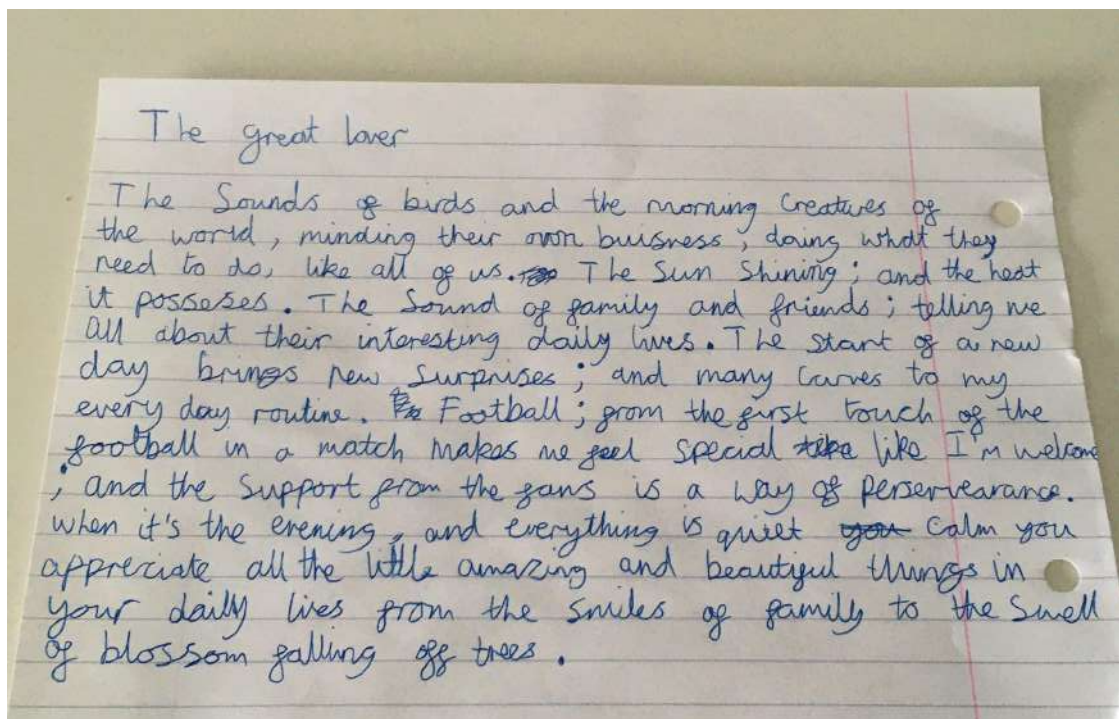 The great lover
The Sounds of birds and the morning Creatures of
the world, minding their own buisness, doing what they
need to do, like all of us. The Sun Shining; and the heat
it posseses. The Sound of family and friends; telling me
all about their interesting daily lives. The start of a new
day brings new surprises; and many Curves to my
every day routine. Football; from the first touch of the
football in a match makes me feel special like I'm welcome
; and the Support from the fans is a way of perservearance.
when it's the evening, and everything is quiet calm you
appreciate all the little amazing and beautiful things in
your daily lives from the smiles of family to the Smell
of blossom falling off trees.